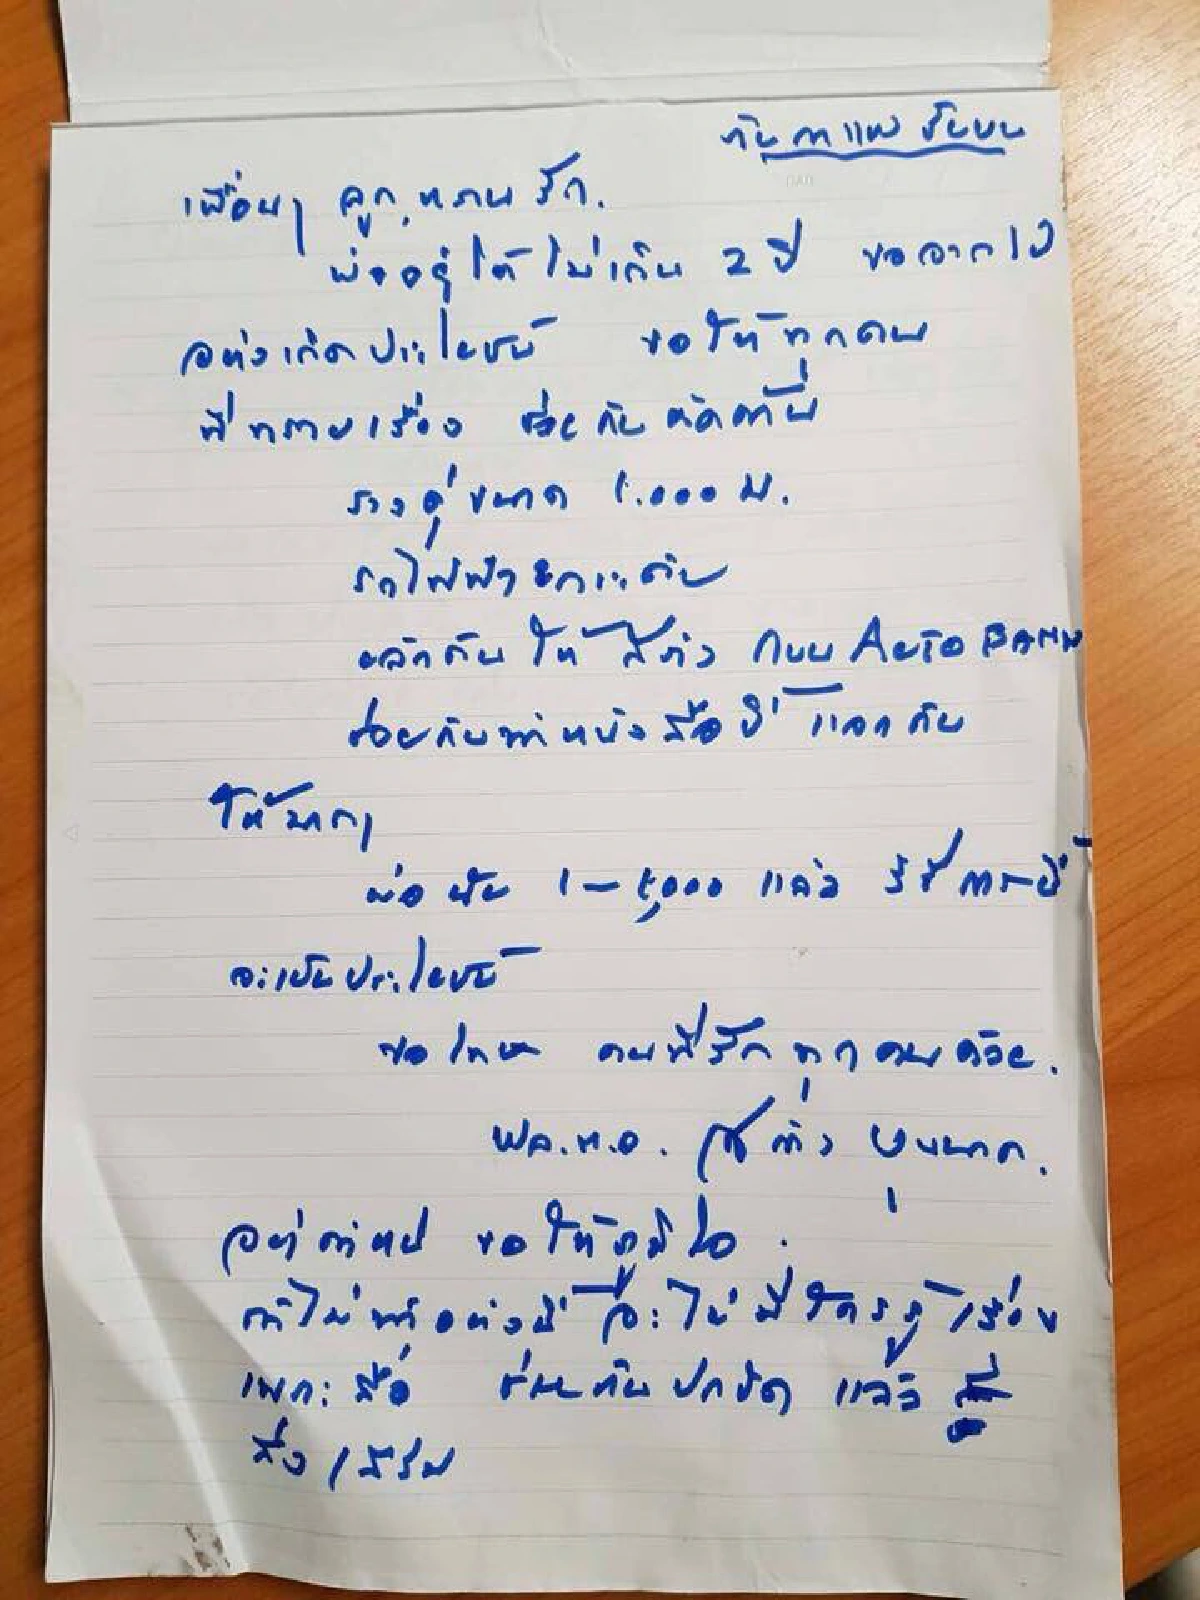 เพื่อนๆ ลูก,หลาน รัก.
พ่ออยู่ได้ไม่เกิน 2 ปี ขอจากไป
อย่างเกิดประโยชน์ ขอให้ทุกคน
ที่ทราบเรื่อง ช่วยกันคัดค้าน
รางคู่ขนาด 1.000 ม.
รถไฟฟ้า
ผลักดันให้ สร้าง ถนน AUTOBAHN
ช่วยกันทำหนังสือนี้ แจกกัน
ให้มากๆ
พ่อ 1–5,000 แล้ว
จะเป็นประโยชน์
ขอโทษ คนที่รัก ทุกคนด้วย.
พล.ท.อ. บุนนาค.
อย่าตำหนิ ขอให้ภูมิใจ.
ถ้าไม่ทำอย่างนี้ จะไม่มีใครรู้เรื่อง
เพราะสื่อ ช่วยกันปกปิด แล้ว
ส่งเสริม